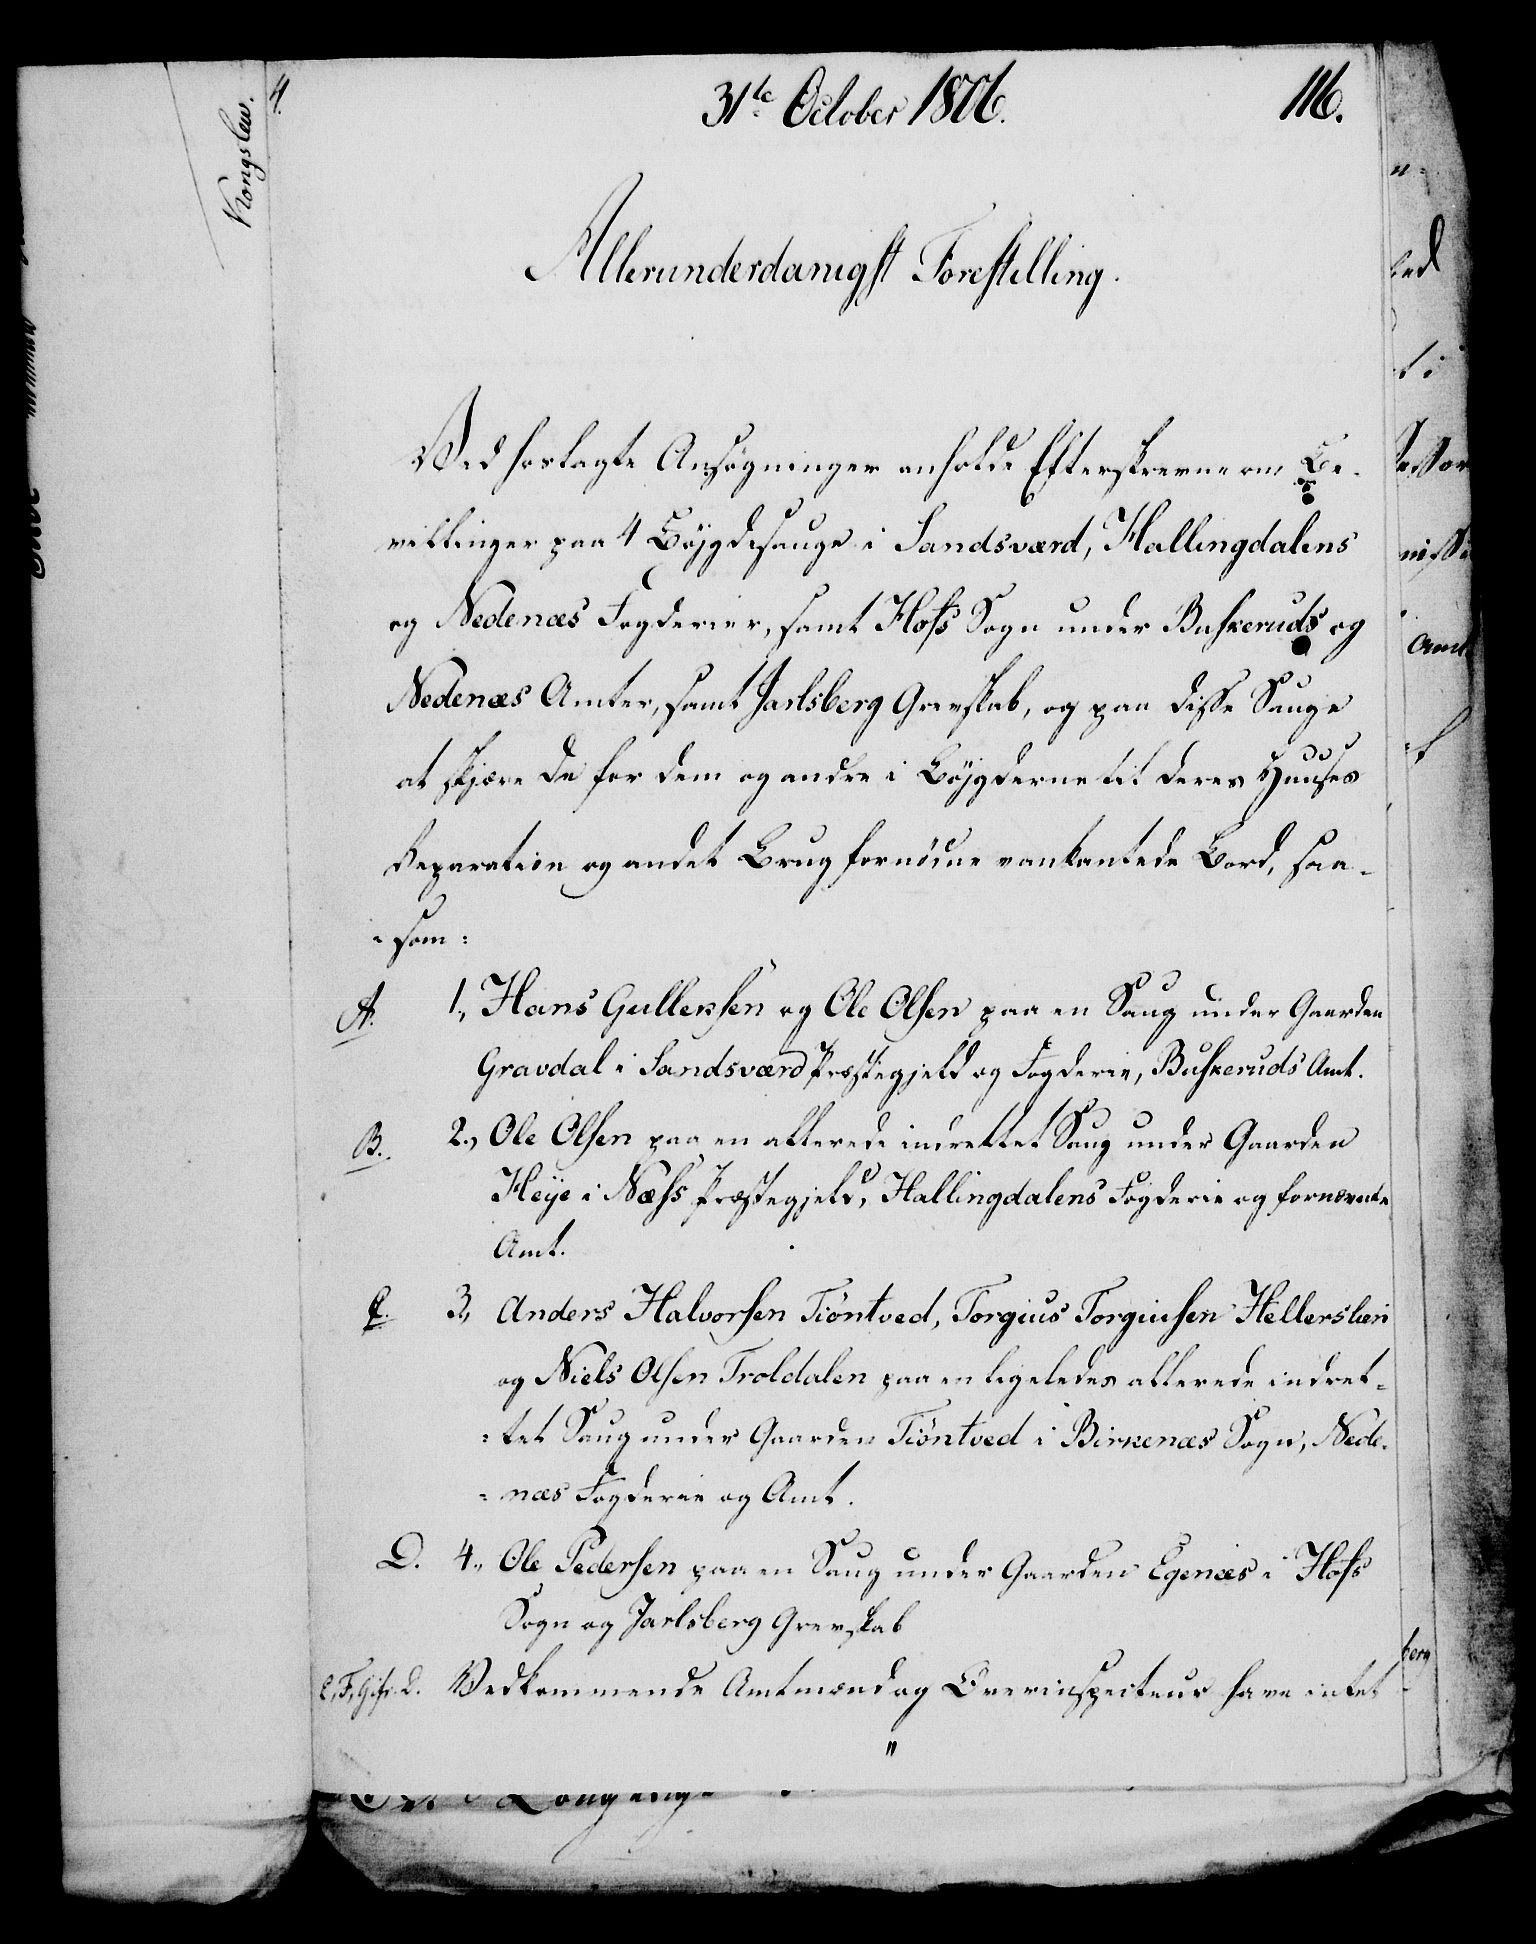 4.
Kongslew.
31te October 1806.
116.
Allerunderdanigst Forestilling.
Ved hoslagte Ansøgninger anholde Efterskrevne om Be-
villinger paa 4 Bøjgdesauge i Sandsværd, Hallingdalens
og Nedenæs Fogderier, samt Hofs Sogn under Buskeruds og
Nedenæs Amter, samt Jarlsberg Grevskab, og paa disse Sauge
at skjære de for dem og andre i Bøjgderne til deres Huuses
Reparation og andet Brug fornødne vankantede Bord, saa-
-som:
A. 1., Hans Gullersen og Ole Olsen paa en Saug under Gaarden
Gravdal i Sandsværd Præstegjeld og Fogderie, Buskeruds Amt.
B. 2., Ole Olsen paa en allerede indrettet Saug under Gaarden
Heije i Næss Præstegjeld, Hallingdalens Fogderie og fornævnte
Amt.
C. 3., Anders Halvorsen Tiöntved, Torgius Torgiusen Hellerslien
og Niels Olsen Troldalen paa en ligeledes allerede indret-
-tet Saug under Gaarden Tiöntved i Birkenæs Sogn, Nede-
-næs Fogderie og Amt.
D. 4., Ole Pedersen paa en Saug under Gaarden Egenæs i Hofs
Sogn og Jarlsberg Grevskab
E, F, G, fr. D. Vedkommende Amtmænd og Overinspecteur have intet
"